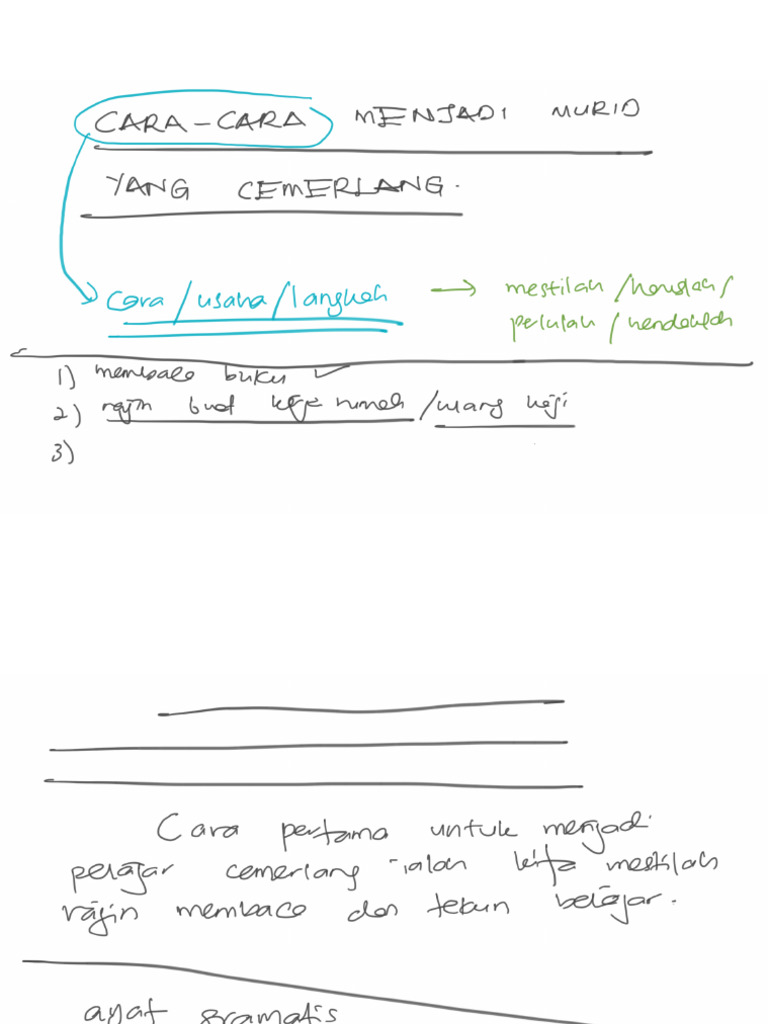 CARA-CARA MENJADI MURID
YANG CEMERLANG.
Cara / usaha / langkah → mestilah / haruslah /
perlulah / hendaklah
1) membaca buku ✓
2) rajin buat kerja rumah / ulang kaji
3)
Cara pertama untuk menjadi
pelajar cemerlang ialah kita mestilah
rajin membaca dan tekun belajar.
ayat gramatis